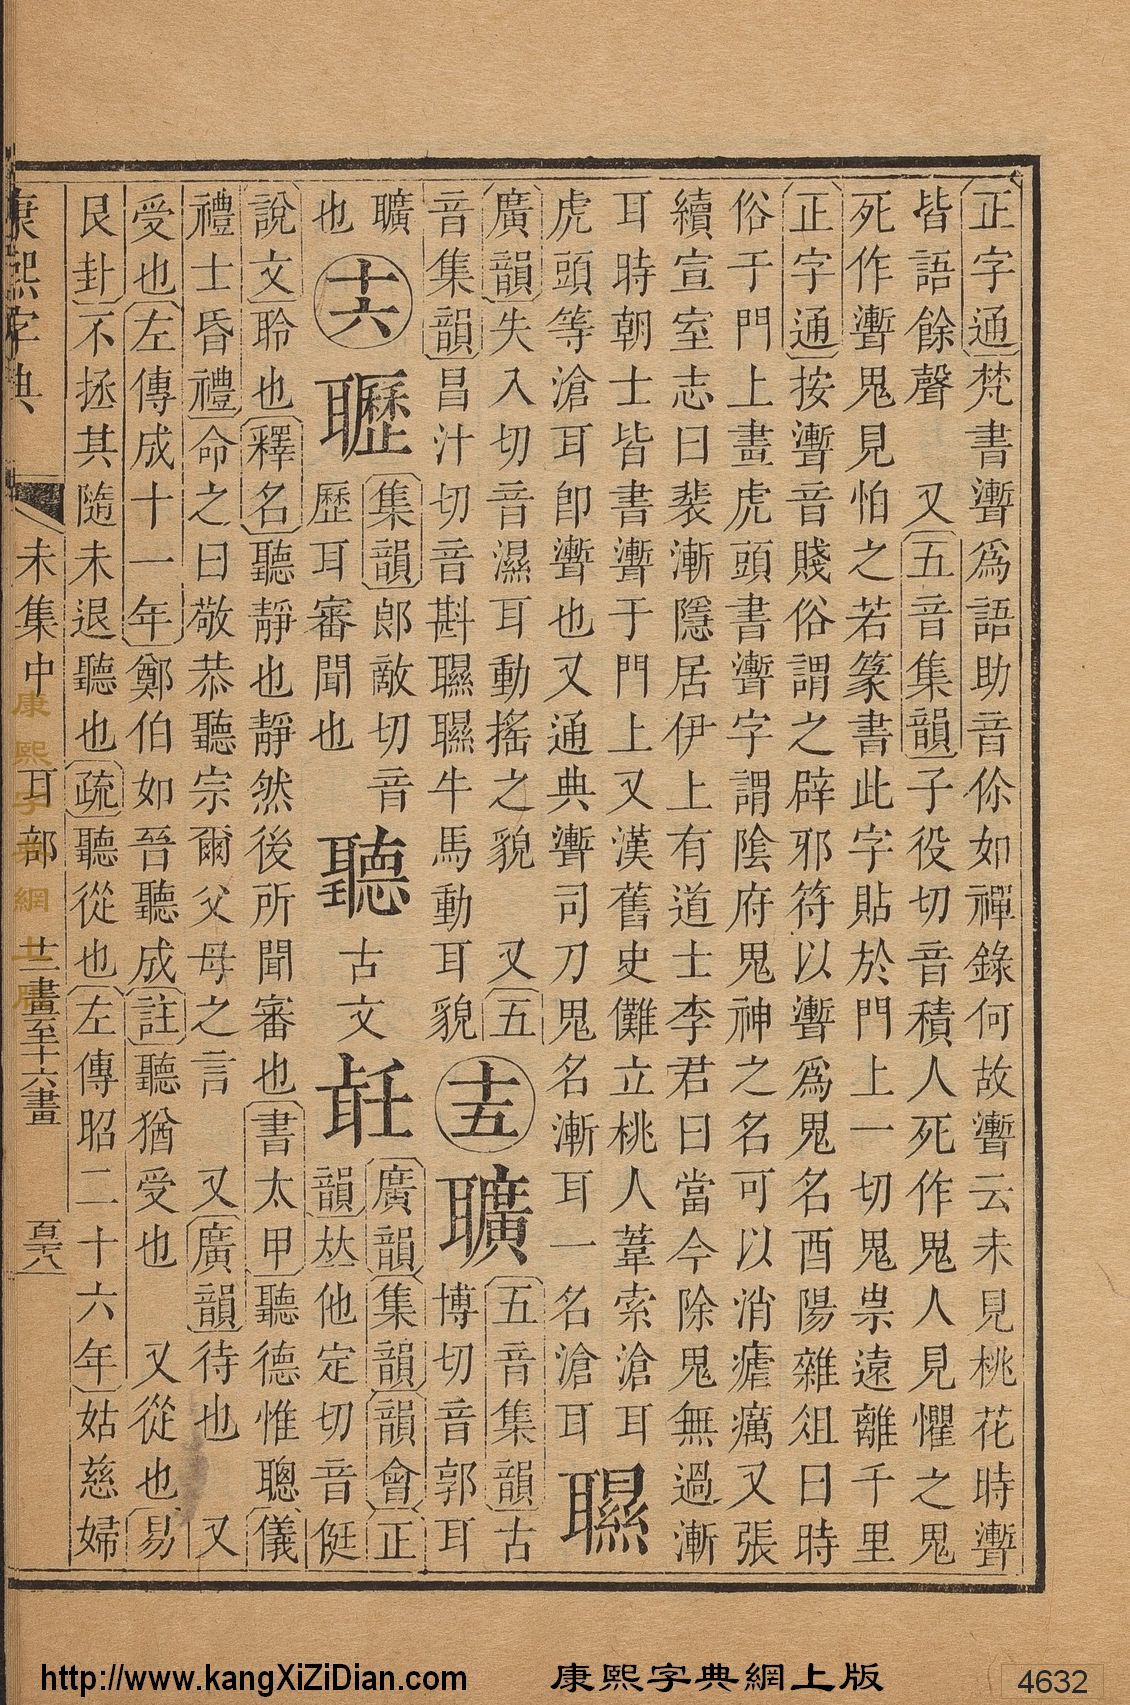 正字通梵書聻爲語助音你如禪錄何故聻云未見桃花時聻
皆語餘聲 又五音集韻子役切音積人死作鬼人見懼之鬼
死作聻鬼見怕之若篆書此字貼於門上一切鬼祟遠離千里
正字通按聻音賤俗謂之辟邪符以聻爲鬼名酉陽雜俎曰時
俗于門上畫虎頭書聻字謂陰府鬼神之名可以消瘧癘又張
續宣室志曰裴漸隱居伊上有道士李君曰當今除鬼無過漸
耳時朝士皆書聻于門上又漢舊史儺立桃人葦索滄耳
虎頭等滄耳卽聻也又通典聻司刀鬼名漸耳一名滄耳 𦗵
廣韻失入切音濕耳動搖之貌 又五音集韻古
音集韻昌汁切音斟𦗵𦗵牛馬動耳貌 十五 矌博切音郭耳
矌也 十六 𦗹 集韻郞敵切音歷耳審聞也 聽 古文 𦕢 廣韻集韻韻會正韻𠀤他定切音侹
說文聆也釋名聽靜也靜然後所聞審也書太甲聽德惟聰儀
禮士昏禮命之曰敬恭聽宗爾父母之言 又廣韻待也 又
受也左傳成十一年鄭伯如吾聽成註聽猶受也 又從也易
艮卦不拯其隨未退聽也疏聽從也左傳昭二十六年姑慈婦
康熙字典 未集中 耳部 十二畫至十六畫 百六八
康熙字典網上版
http://www.kangXiZiDian.com 康熙字典網上版 4632